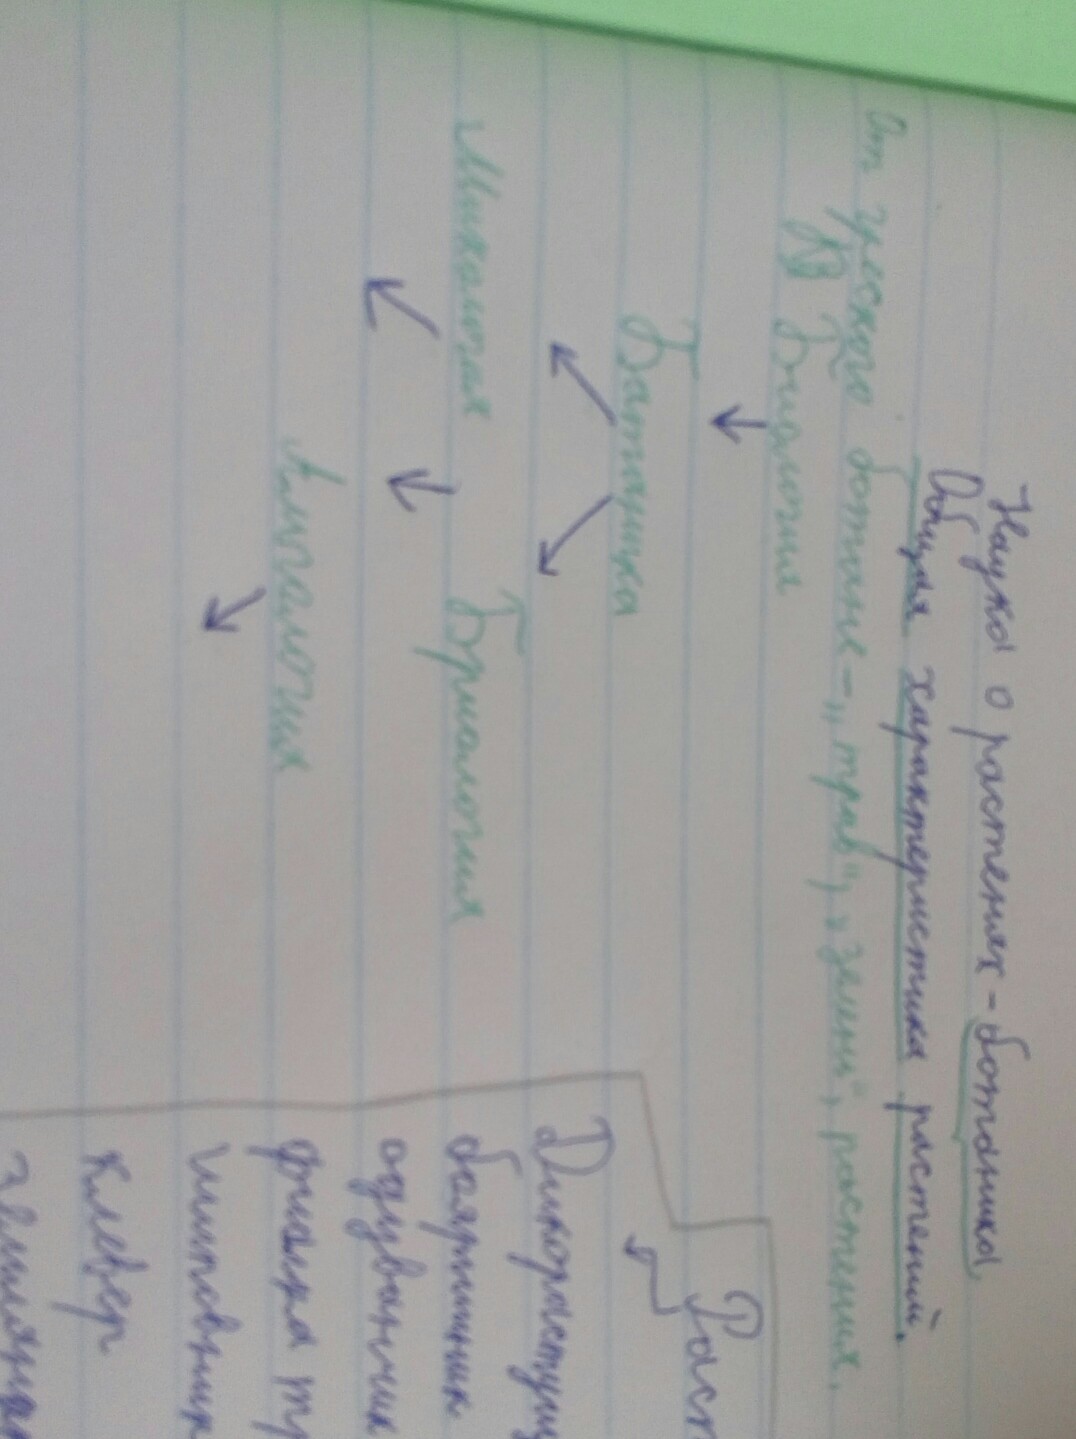 Наука о растениях - ботаника.
Общая характеристика растений.
От греского ботане - „трав", „зелень", растения.
Биология
Батаника
Микология Бриология
Алгология
Раст
Дикорастущи
боярышник
одуванчик
фиалка тр
шиповник
клевер